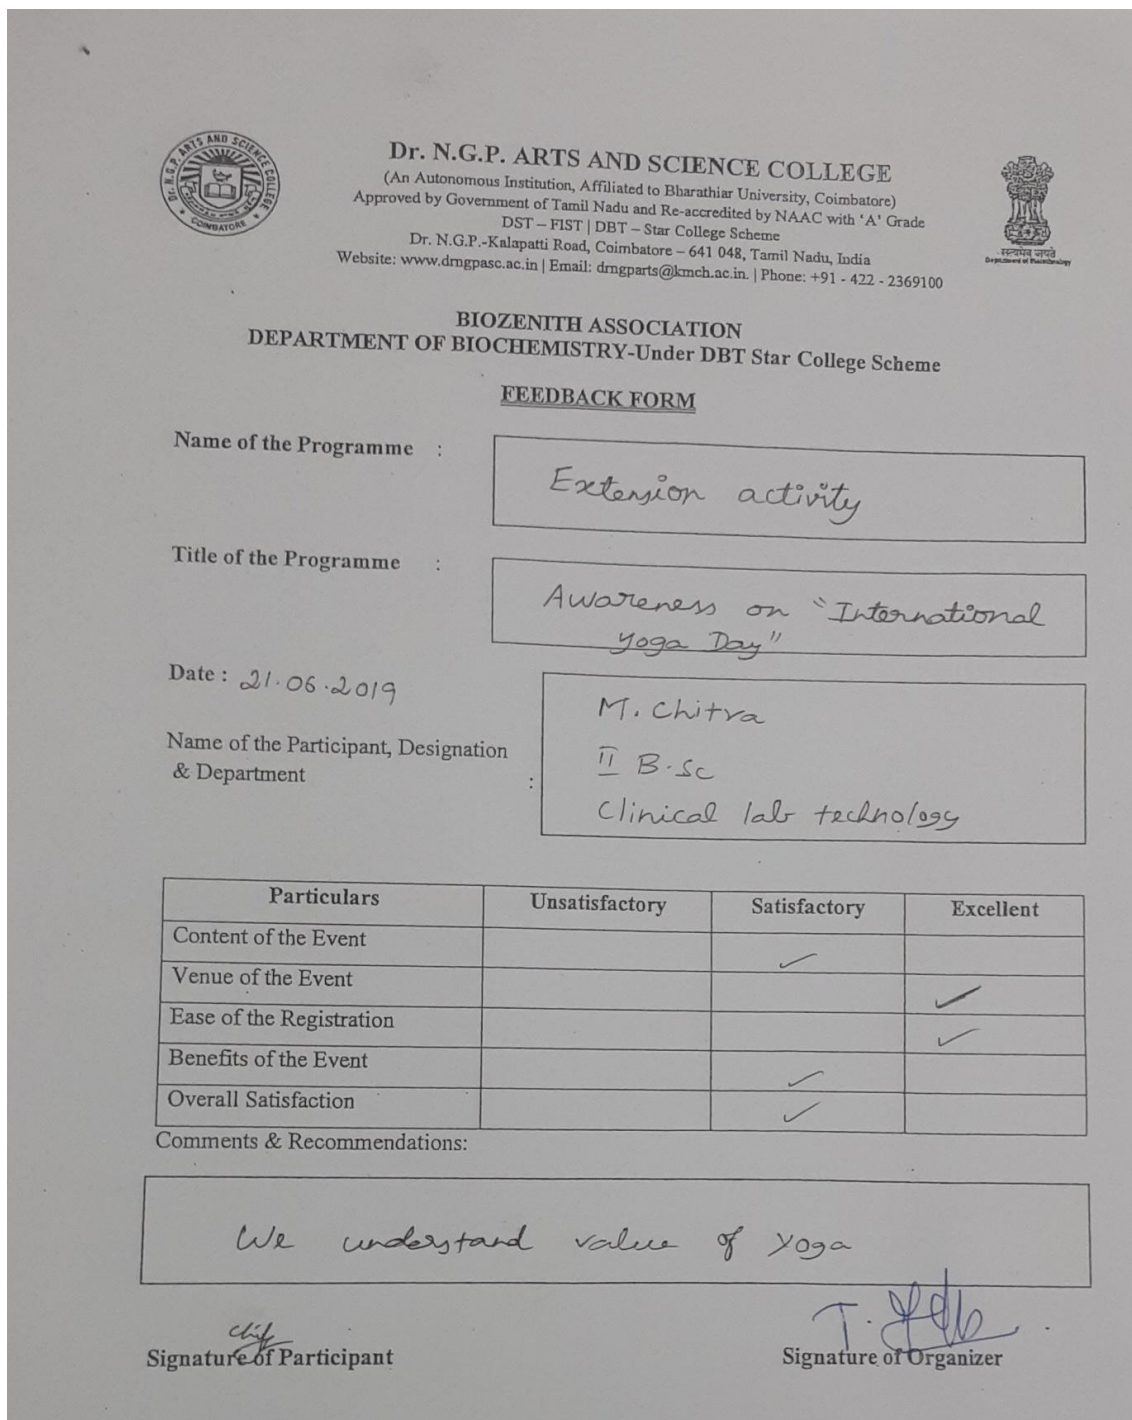 Dr. N.G.P. ARTS AND SCIENCE COLLEGE
COIMBATORE
Dr. N.G.P. ARTS AND SCIENCE COLLEGE
(An Autonomous Institution, Affiliated to Bharathiar University, Coimbatore)
Approved by Government of Tamil Nadu and Re-accredited by NAAC with 'A' Grade
DST – FIST | DBT – Star College Scheme
Dr. N.G.P.-Kalapatti Road, Coimbatore – 641 048, Tamil Nadu, India
Website: www.drngpasc.ac.in | Email: drngparts@kmch.ac.in. | Phone: +91 - 422 - 2369100
सत्यमेव जयते
Department of Biotechnology
BIOZENITH ASSOCIATION
DEPARTMENT OF BIOCHEMISTRY-Under DBT Star College Scheme
FEEDBACK FORM
Name of the Programme : Extension activity
Title of the Programme : Awareness on "International
Yoga Day"
Date : 21.06.2019
Name of the Participant, Designation
& Department :
M. Chitra
II B.Sc
Clinical lab technology
Particulars Unsatisfactory Satisfactory Excellent
Content of the Event ✓
Venue of the Event ✓
Ease of the Registration ✓
Benefits of the Event ✓
Overall Satisfaction ✓
Comments & Recommendations:
We understand value of yoga
Signature of Participant
Signature of Organizer